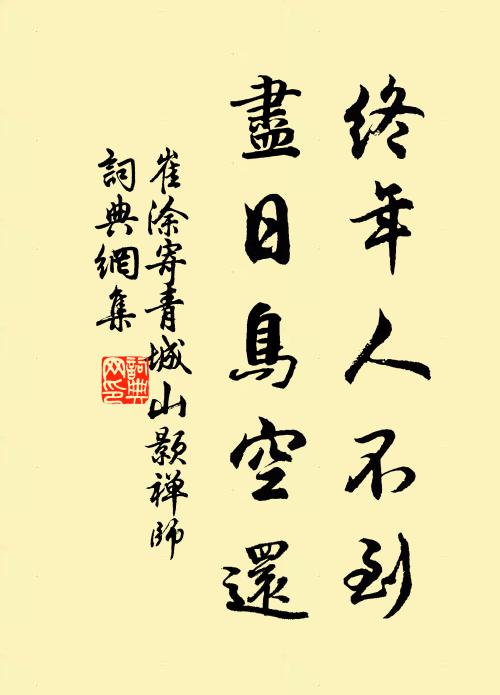 終年人不到
盡日鳥空還
崔涂寄青城山顥禅師
詞典網集
詞典網印